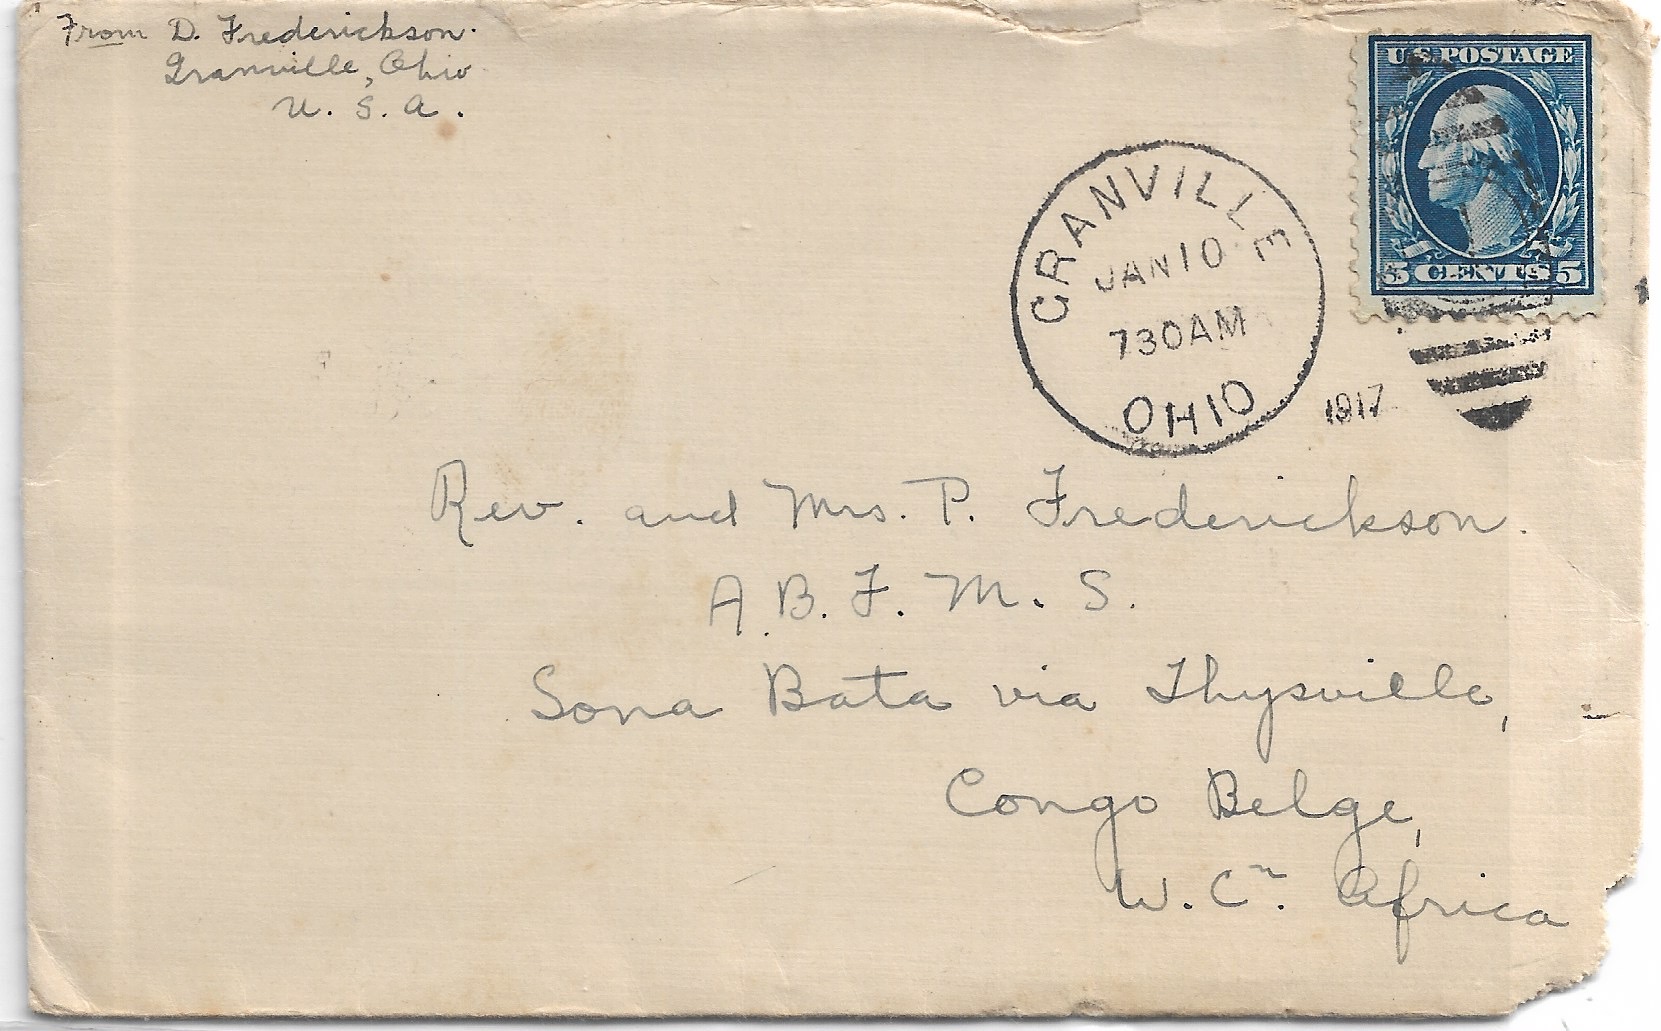 From D. Frederickson.
Granville, Ohio
U. S. A.
U.S. POSTAGE
5 CENTS 5
GRANVILLE
JAN 10
730AM
OHIO
1917
Rev. and Mrs. P. Frederickson.
A. B. F. M. S.
Sona Bata via Thysville,
Congo Belge,
W. C. Africa